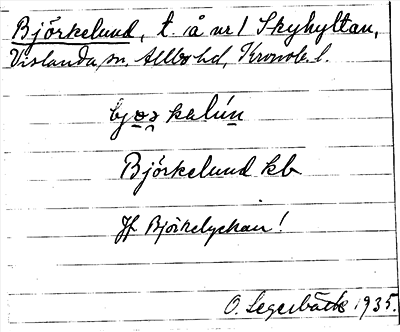 Björkelund, t. å nr 1 Skyhyltan,
Vislanda sn, Allbo hd, Kronob. l.
Björkelund kb
Jf Björkelyckan!
O. Segerbäck 1935.